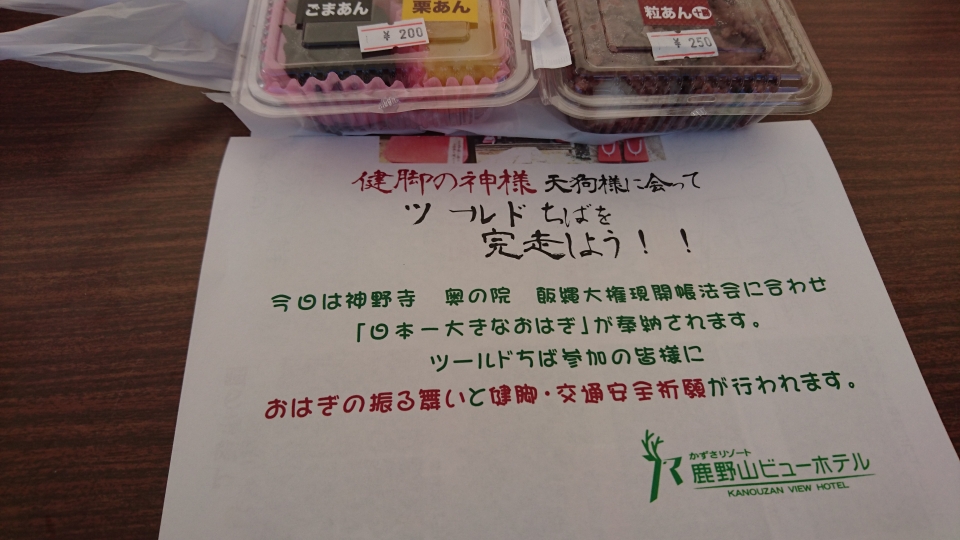 ごまあん
栗あん
¥ 200
粒あん
¥ 250
健脚の神様 天狗様に会って
ツールドちばを
完走しよう!!
今回は神野寺 奥の院 飯縄大権現開帳法会に合わせ
「日本一大きなおはぎ」が奉納されます。
ツールドちば参加の皆様に
おはぎの振る舞いと健脚・交通安全祈願が行われます。
かずさリゾート
鹿野山ビューホテル
KANOUZAN VIEW HOTEL